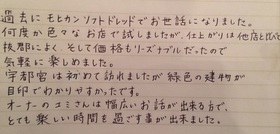 過去に モヒカンソフトドレッドでお世話になりました。
何度か色々なお店で試しましたが、仕上りは他店と比べて
抜群によく、そして価格もリーズナブルだったので
気軽に楽しめました。
宇都宮は初めて訪れましたが緑色の建物が
目印でわかりやすかったです。
オーナーのユミさんは幅広いお話が出来る方で、
とても楽しい時間を過ごす事が出来ました。